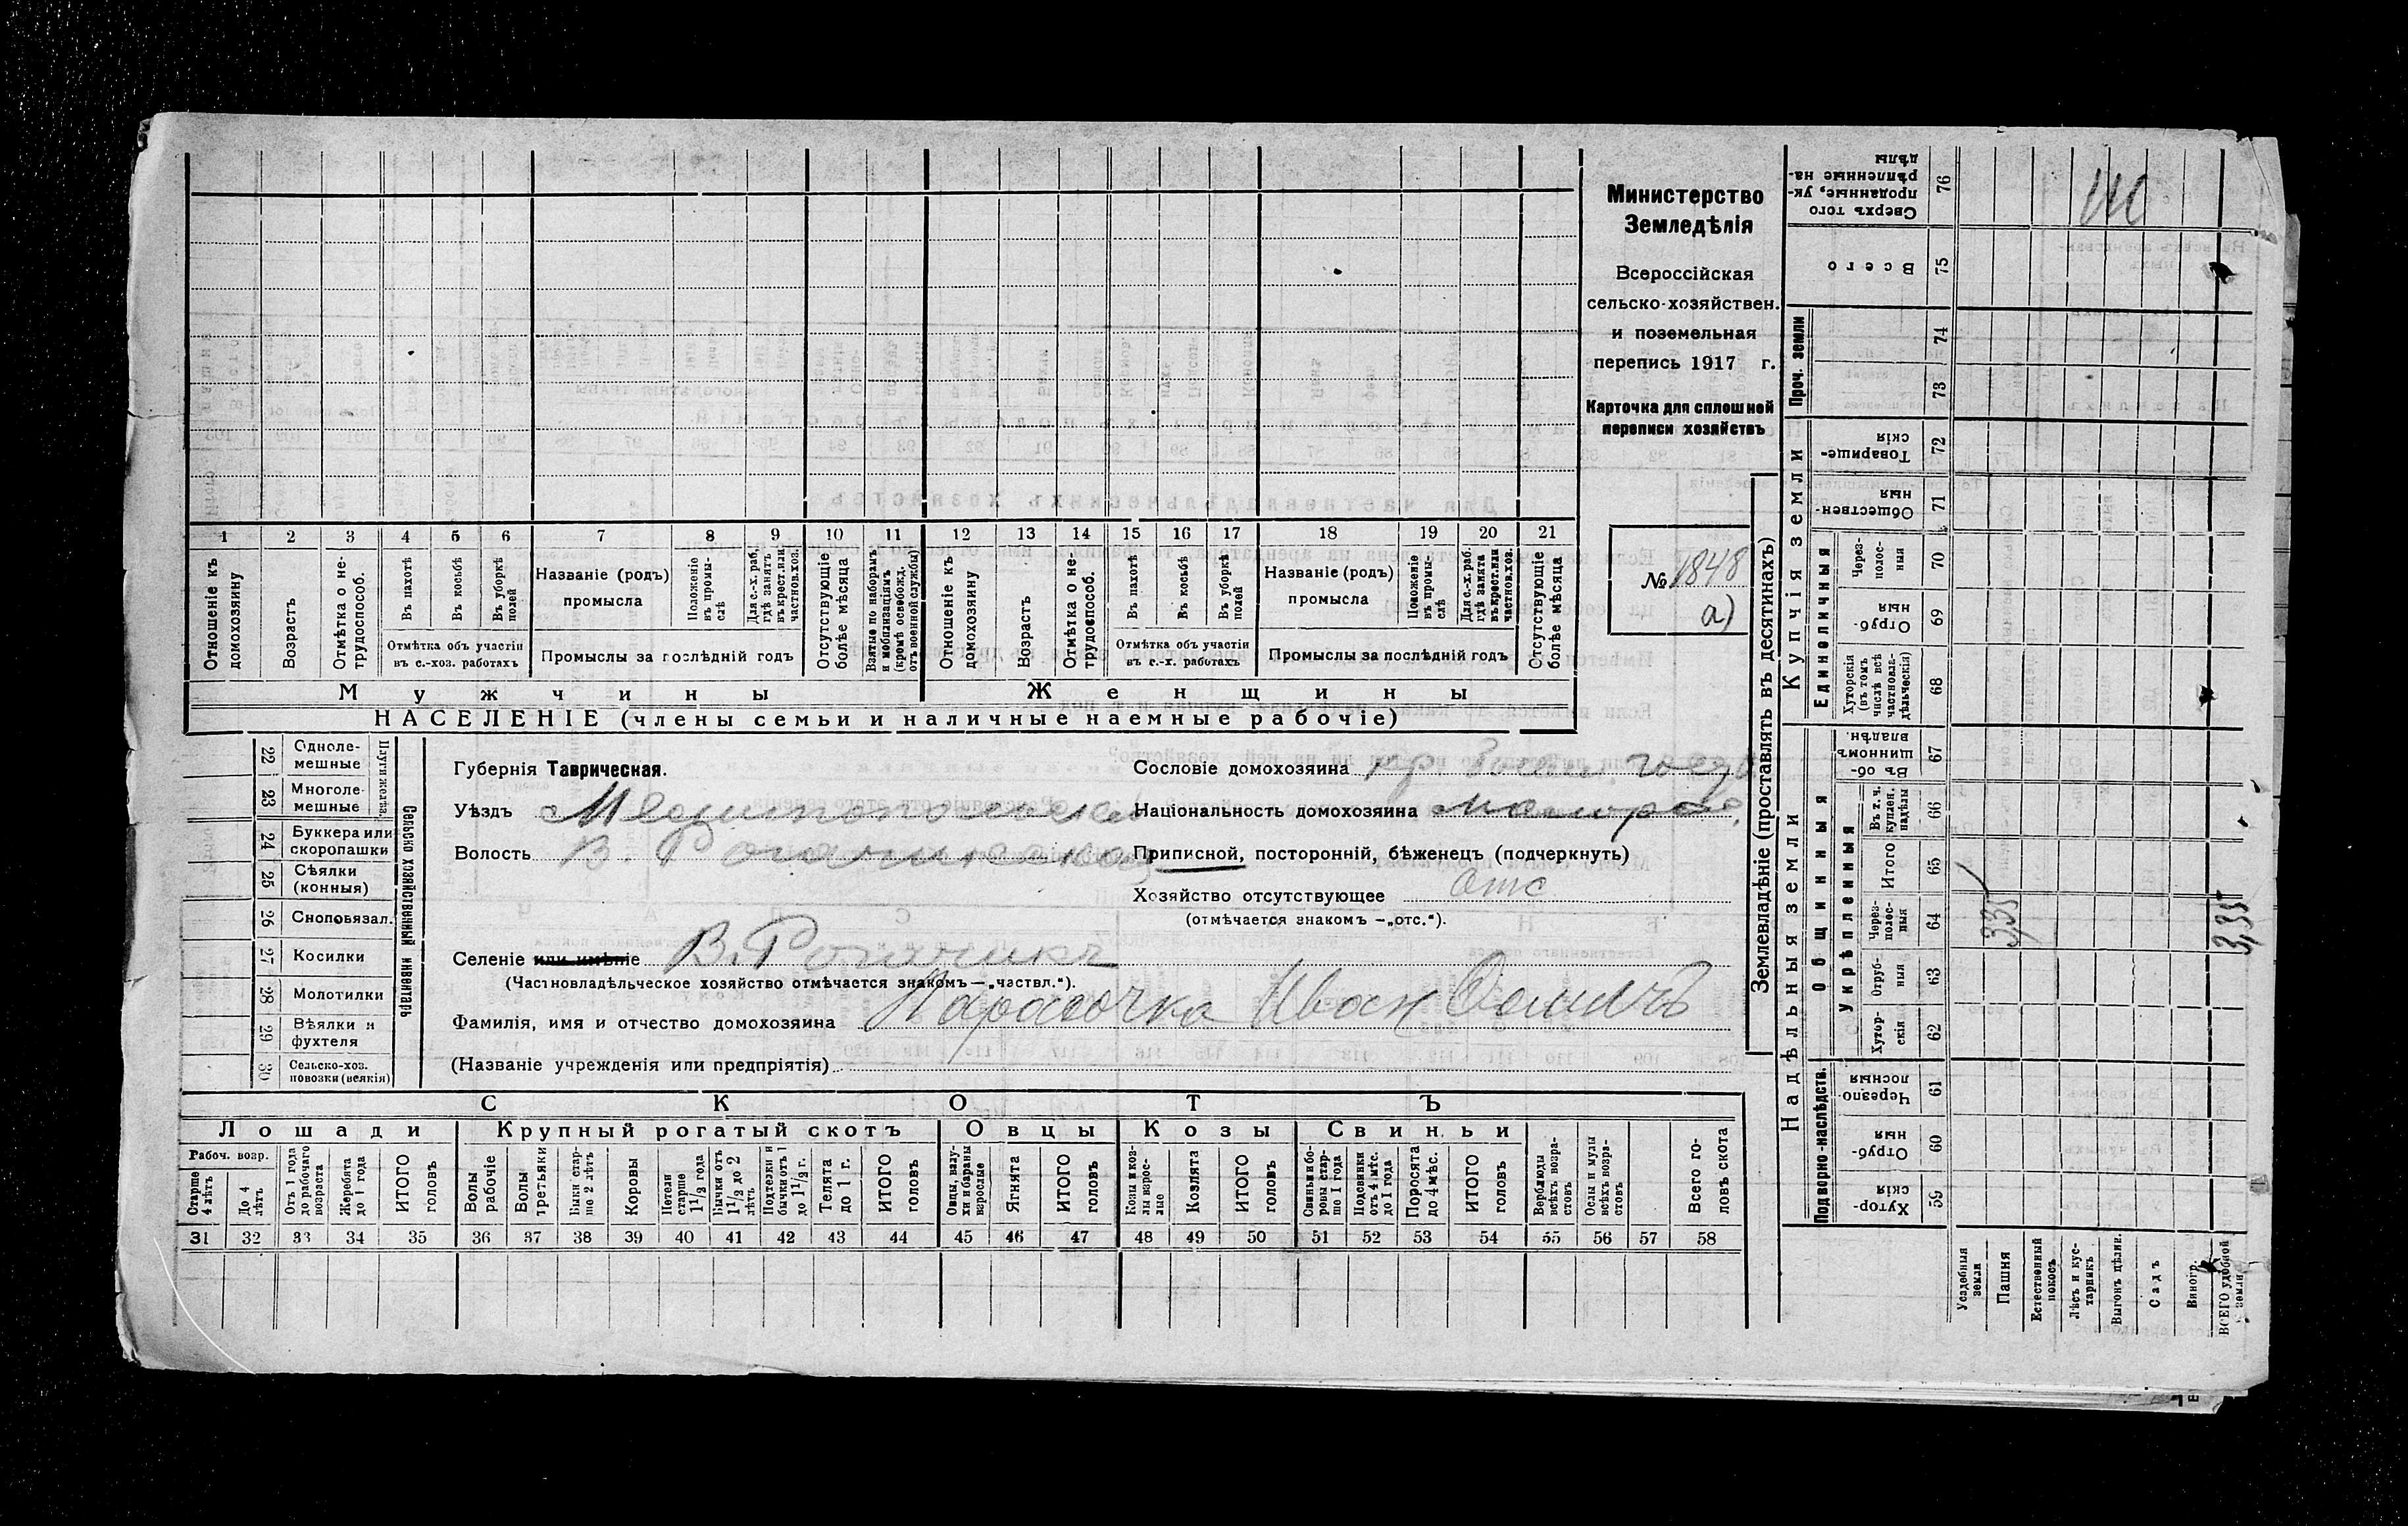 Министерство
Земледѣлія
Всероссійская
сельско-хозяйствен.
и поземельная
перепись 1917 г.
Карточка для сплошной
переписи хозяйствъ
№ 1848
а)
1 2 3 4 5 6 7 8 9 10 11 12 13 14 15 16 17 18 19 20 21
Отношеніе къ домохозяину
Возрастъ
Отмѣтка о не-трудоспособ.
Въ пахотѣ
Въ косьбѣ
Въ уборкѣ полей
Отмѣтка объ участіи въ с.-хоз. работахъ
Названіе (родъ) промысла
Положеніе въ промы-слѣ
Для с.-х. раб. гдѣ занятъ въ крест. или частнов. хоз.
Промыслы за послѣдній годъ
Отсутствующіе болѣе мѣсяца
Взятые по наборамъ и мобилизаціямъ (кромѣ освобожд. отъ военной службы)
Отношеніе къ домохозяину
Возрастъ
Отмѣтка о не-трудоспособ.
Въ пахотѣ
Въ косьбѣ
Въ уборкѣ полей
Отмѣтка объ участіи въ с.-х. работахъ
Названіе (родъ) промысла
Положеніе въ промы-слѣ
Для с.-х. раб. гдѣ занята въ крест. или частнов. хоз.
Промыслы за послѣдній годъ
Отсутствующіе болѣе мѣсяца
Мужчины
Женщины
НАСЕЛЕНІЕ (члены семьи и наличные наемные рабочіе)
22 Одноле-мешные
23 Многоле-мешные
24 Буккера или скоропашки
25 Сѣялки (конныя)
26 Сноповязал.
27 Косилки
28 Молотилки
29 Вѣялки и фухтеля
30 Сельско-хоз. повозки (всякія)
Сельско хозяйственный инвентарь
Губернія Таврическая.
Уѣздъ Мелитопольскій
Волость В. Рогачикская
Селеніе или имѣніе В. Рогачикъ
(Частновладѣльческое хозяйство отмѣчается знакомъ—„частвл.").
Фамилія, имя и отчество домохозяина Парасочка Иванъ
(Названіе учрежденія или предпріятія)
Сословіе домохозяина
Національность домохозяина малорос.
Приписной, посторонній, бѣженецъ (подчеркнуть)
Хозяйство отсутствующее Отс
(отмѣчается знакомъ —„отс.").
СКОТЪ
Лошади
Крупный рогатый скотъ
Овцы
Козы
Свиньи
Рабоч. возр.
Старше 4 лѣтъ
До 4 лѣтъ
Отъ 1 года до рабочаго возраста
Жеребята до 1 года
ИТОГО головъ
Волы рабочіе
Волы третьяки
Быки стар-ше 2 лѣтъ
Коровы
Нетели старше 1½ года
Бычки отъ 1½ до 2 лѣтъ
Подтелки и бычки отъ 1 до 1½ г.
Телята до 1 г.
ИТОГО головъ
Овцы, валу-хи и бараны взрослые
Ягнята
ИТОГО головъ
Козы и коз-лы взрос-лые
Козлята
ИТОГО головъ
Свиньи и бо-ровы стар-ше 1 года
Подсвинки отъ 4 мѣс. до 1 года
Поросята до 4 мѣс.
ИТОГО головъ
Верблюды всѣхъ возра-стовъ
Ослы и мулы всѣхъ возра-стовъ
Всего го-ловъ скота
31 32 33 34 35 36 37 38 39 40 41 42 43 44 45 46 47 48 49 50 51 52 53 54 55 56 57 58
Землевладѣніе (проставлять въ десятинахъ)
Надѣльныя земли
Купчія земли
Проч. земли
Подворно-наслѣдств.
Общинныя
Укрѣпленныя
Единоличныя
Сверхъ того проданные, ук-рѣпленные на-дѣлы 76
Всего 75
74
73
Товарище-скія 72
Обществен-ныя 71
Через-полос-ныя 70
Отруб-ныя 69
Хуторскія (въ томъ числѣ всѣ частновла-дѣльческія) 68
Въ об-щинномъ владѣн. 67
Въ т. ч. куплен. надѣлы 66
Итого 65
Через-полос-ныя 64
Отруб-ныя 63
Хутор-скія 62
Черезпо-лосныя 61
Отруб-ныя 60
Хутор-скія 59
3,35
3,35
Усадебныя земля
Пашня
Естественный покосъ
Лѣсъ и кус-тарникъ
Выгонъ цѣлин.
Садъ
Виногр.
ВСЕГО удобной земли